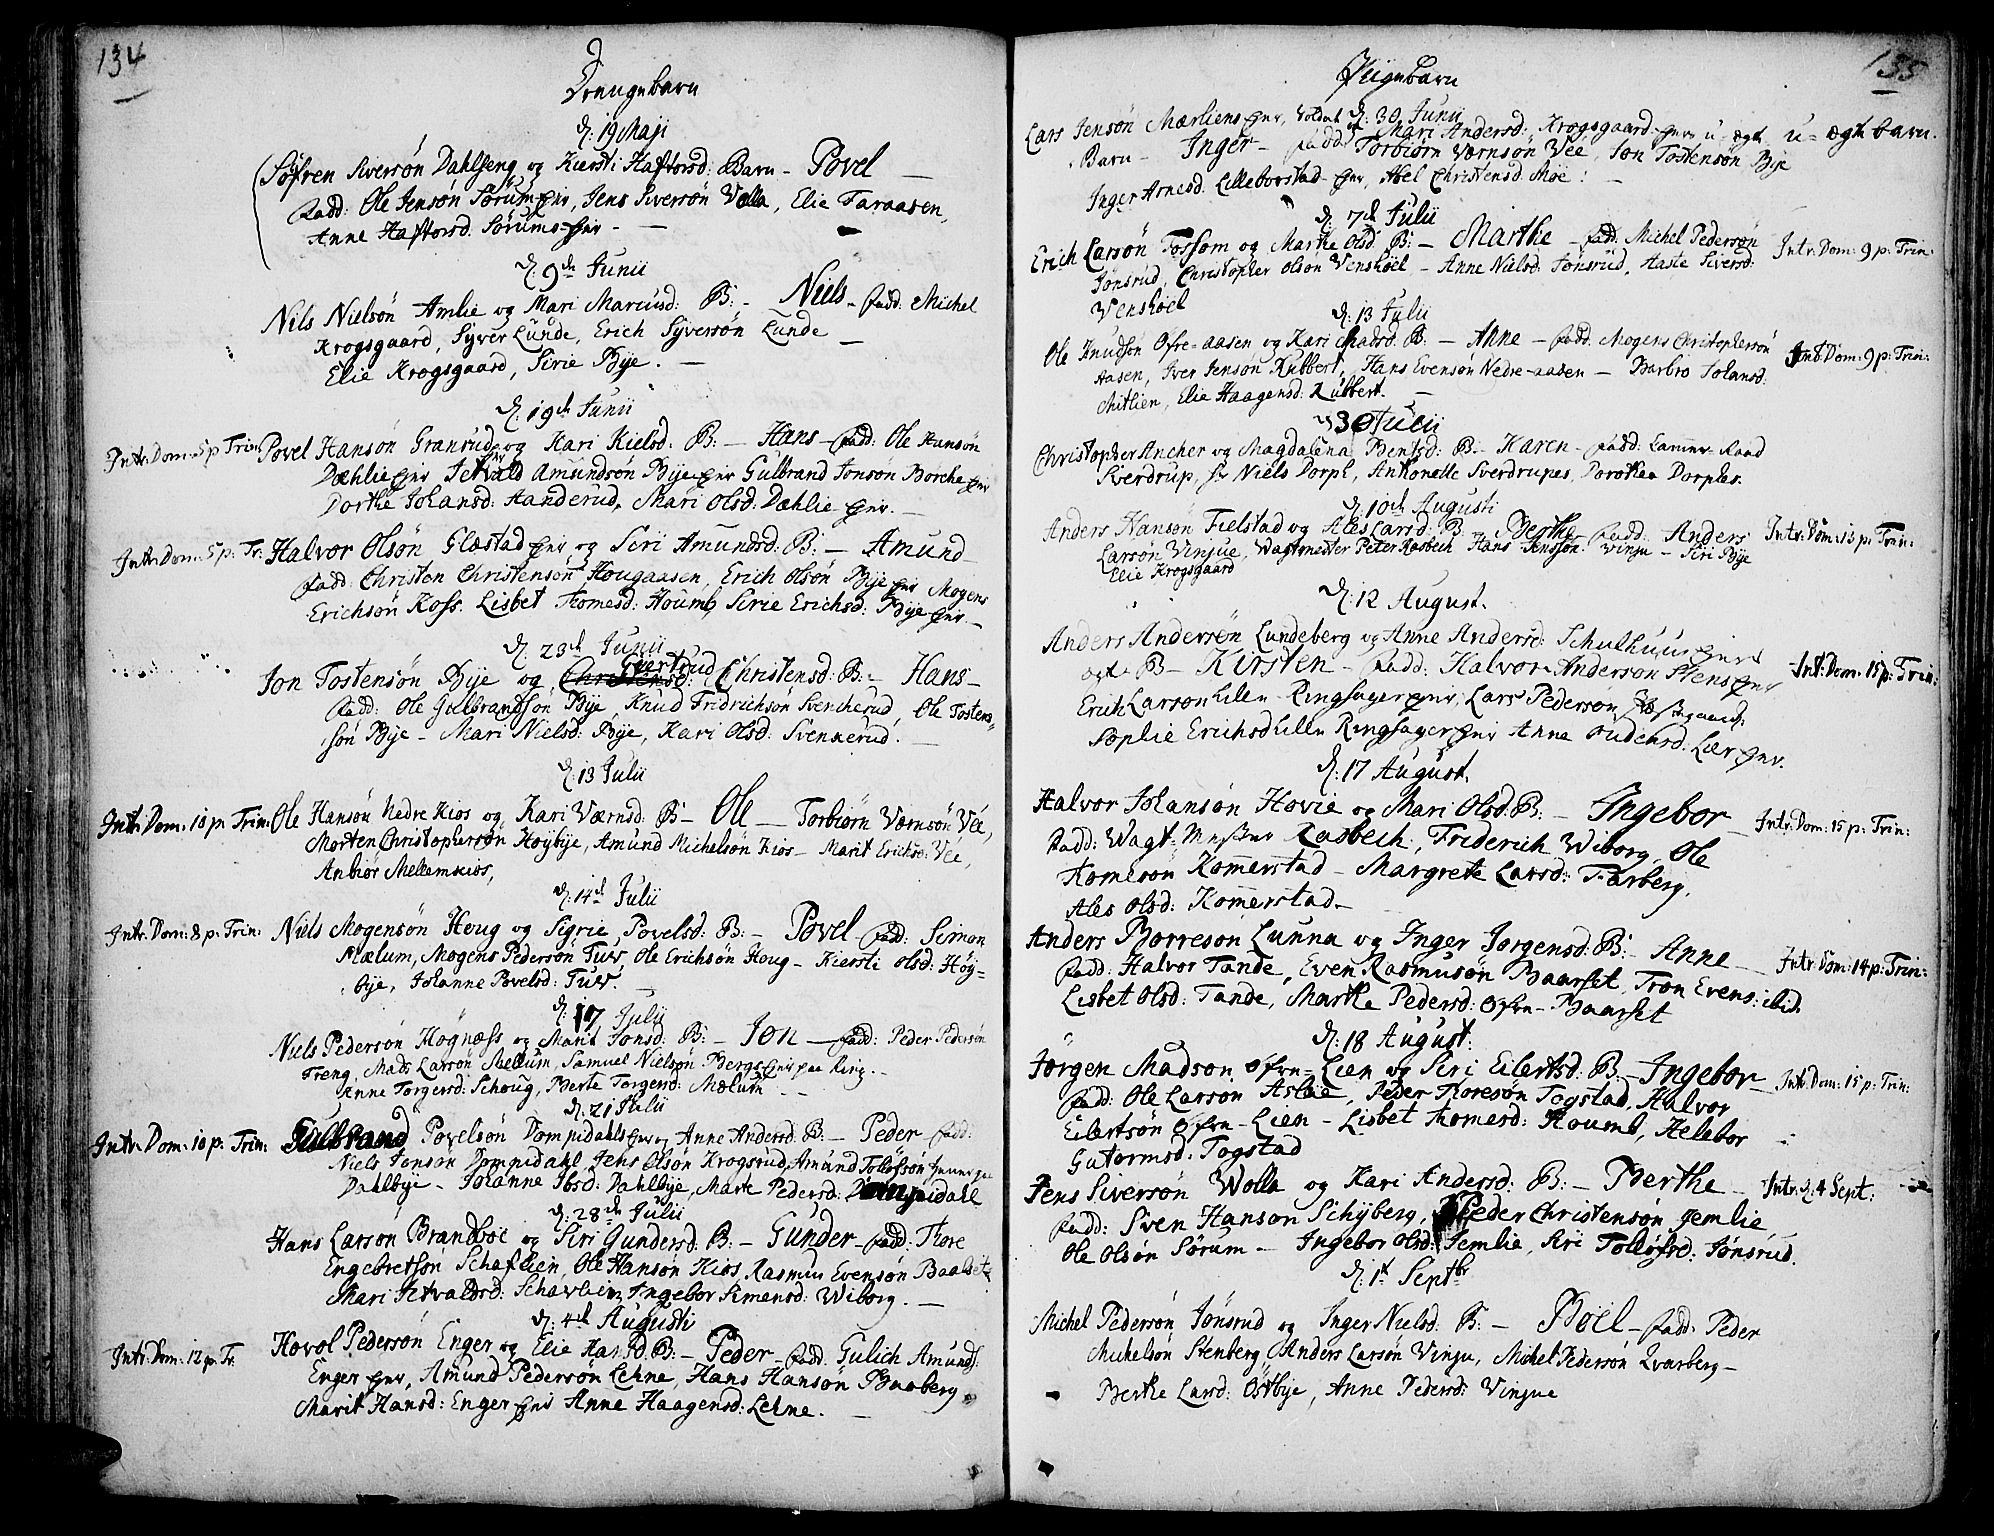 134
Drengebarn
d: 19 Maji
Søfren Siversön Dahlseng og Kiersti Haftorsd: Barn - Povel -
Fadd: Ole Jensön Sörum-Eier, Jens Siversön Volla, Elie Faraasen,
Anne Haftorsd. Sörums-Eier -
d. 9de Junii
Nils Nielsön Amlie og Mari Marcusd: B: - Niels - Fadd: Michel
Krogsgaard, Syver Lunde, Erich Syversön Lunde -
Elie Krogsgaard, Sirie Bye. -
d: 19de Junii
Intr: Dom: 5 p Trin: Povel Hansön Granrud og Kari Kielsd: B: - Hans - Fadd: Ole Hansön
Dæhlie Eier Amundsön Bije Eier Gulbrand Jonsön Borche Eier
Dorthe Johansd: Handerud, Mari Olsd: Dæhlie-Eier. -
Intr: Dom: 5 p: Tr: Halvor Olsön Glæstad Eier og Siri Amundsd: B: - Amund -
Fadd: Christen Christensön Hougaasen, Erich Olsön Bije Eier Mogens
Erichsön Koss. Lisbet Thomesd: Houmb, Sirie Erichsd: Bije Eier. -
d. 23de Junii
Jon Tostensön Bije og Giertrud Christensd: B: - Hans -
Fadd: Ole Gulbrandsön Bije Knud Fridrichsön Svencherud, Ole Tostens-
sön Bije - Mari Nielsd: Bije, Kari Olsd: Svenkerud. -
d: 13 Julii
Intr: Dom: 10 p: Trin: Ole Hansön Nedre Kios og Kari Værnsd: B - Ole - Torbiörn Værnsön Vee,
Morten Christophersön Höybye, Amund Michelsön Kios - Marit Erichsd: Vee,
Anbiör Mellemkios,
d: 14de Julii
Intr: Dom: 8 p: Trin: Niels Mogensön Houg og Sigrie Povelsd: B: - Povel - Fadd: Simon
Mælum, Mogens Pedersön Tuv, Ole Erichsön Houg - Kiersti Olsd: Höy-
bye, Johanne Povelsd: Tuv.
d: 17 Julii
Niels Pedersön Högnæss og Marit Jonsd: B: - Jon - Fadd: Peder Pedersön
Freng, Mads Larsön Mellum, Samuel Nielsön Bergs Eier paa Ring. -
Anne Torgersd: Schoug, Berte Torgersd: Mælum - -
d: 21 Julii
Intr: Dom: 10 p: Trin: Gulbrand Povelsön Dompidahls Eier og Anne Andersd: B: - Peder Fadd:
Niels Jonsön Dompidahl, Jens Olsön Krogsrud, Amund Tollöfsön
Dahlbye - Johanne Ibsd: Dahlbye, Marte Pedersd: Dompidahl
d: 28de Julii
Hans Larsön Brandboe og Siri Gundersd: B: - Gunder - Fadd: Thore
Engebretsön Schaflien, Ole Hansön Kios, Rasmus Evensön Baadset
Mari Sivaldsd: Schavlien, Ingebor Simensd: Wiborg. -
d: 4de Augusti
Intr: Dom: 12 p: Tr: Hovol Pedersön Enger og Elie Hansd: B: - Peder - Fadd: Gulich Amunds:
Enger Eier, Amund Pedersön Lehne, Hans Hansön Buberg
Marit Hansd: Enger Eier Anne Haagensd: Lehne. -
135
Piigebarn
d: 30 Junii
Lars Jensön Mærliens Eier, Soldat og Mari Andersd: Krogsgaard-Eier u-ægt u-ægte barn.
Barn - Inger - Fadd: Torbiörn Værnsön Vee, Jon Tostensön Bije
Inger Arnesd. Lilleborstad-Eier, Abel Christensd: Moe: -
d: 7de Julii
Erich Larsön Fossom og Marthe Olsd B: - Marthe - Fadd. Michel Pedersön Intr: Dom: 9 p: Trin:
Jönsrud, Christopher Olsön Venshoel - Anne Nielsd: Jönsrud, Aaste Siversd:
Venshoel
d: 13 Julii
Ole Knudsön Öfre-aasen og Kari Madsd. B: - Anne - Fadd: Mogens Christophersön Intr: Dom: 9 p: Trin:
Aasen, Iver Jensön Kubbert, Hans Evensön Nedre-aasen - Barbro Johansd:
Mitlien, Elie Haagensd: Kubbert. -
d 30 Julii
Christopher Ancher og Magdalena Bentsd: B: - Karen - Fadd: Cammer-Raad
Sverdrup, Hr Niels Dorph, Anthonette Sverdrupes, Dorothea Dorphes.
d: 10de Augusti
Anders Hansön Fielstad og Ales Larsd: B. Berthe - Fadd: Anders Intr: Dom: 13 p: Trin:
Larsön Vinjue, Wagtmester Peter Rasbech Hans Jenssön Vinju - Siri Bije
Elie Krogsgaard
d: 12 August.
Anders Andersön Lundeberg og Anne Andersd: Schulhuus Eier
B - Kirsten - Fadd: Halvor Andersön Stens Eier Int: Dom: 15 p: Trin:
Erich Larson Lille-Ringsager Eier, Lars Pedersön
Sophie Erichsd Lille Ringsager Eier Anne Oudensd: Lær Eier.
d: 17 August.
Halvor Johansön Hovie og Mari Olsd: B: - Ingebor - Intr: Dom: 15 p: Trin:
Fadd: Wagt-Mester Rasbech, Friderich Wiborg, Ole
Thomesön Kommerstad - Margrete Larsd: Farberg,
Ales Olsd: Kommerstad -
Anders Borreson Lunna og Inger Jorgensd: B: - Anne - Intr: Dom: 14 p: Trin:
Fadd: Halvor Tande, Even Rasmusön Baarset, Tron Evens: ibid.
Lisbet Olsd: Tande, Marthe Pedersd: Öfre-Baarset
d: 18 August:
Jörgen Madson Öfre-Lien og Siri Eilertsd: B: - Ingebor - Intr: Dom: 15 p: Trin:
Fadd: Ole Larson Aslie, Peder Thoresön Togstad, Halvor
Eilertsön Öfre-Lien - Lisbet Thomesd: Houmb, Helebor
Gutormsd: Togstad
Jens Siversön Wolla og Kari Andersd: B: - Berthe - Intr: d: 4 Sept:
Fadd: Sven Hanson Schyberg, Peder Christensön Jemlie
Ole Olsön Sörum - Ingebor Olsd: Jemlie, Siri Tollöfsd: Jönsrud.
d: 1st Septbr
Michel Pedersön Jönsrud og Inger Nielsd: B: - Boel - Fadd: Peder
Michelsön Stenberg Anders Larsön Vinju, Michel Pedersön Qvarberg -
Berthe Larsd: Östbye, Anne Pedersd: Vingue